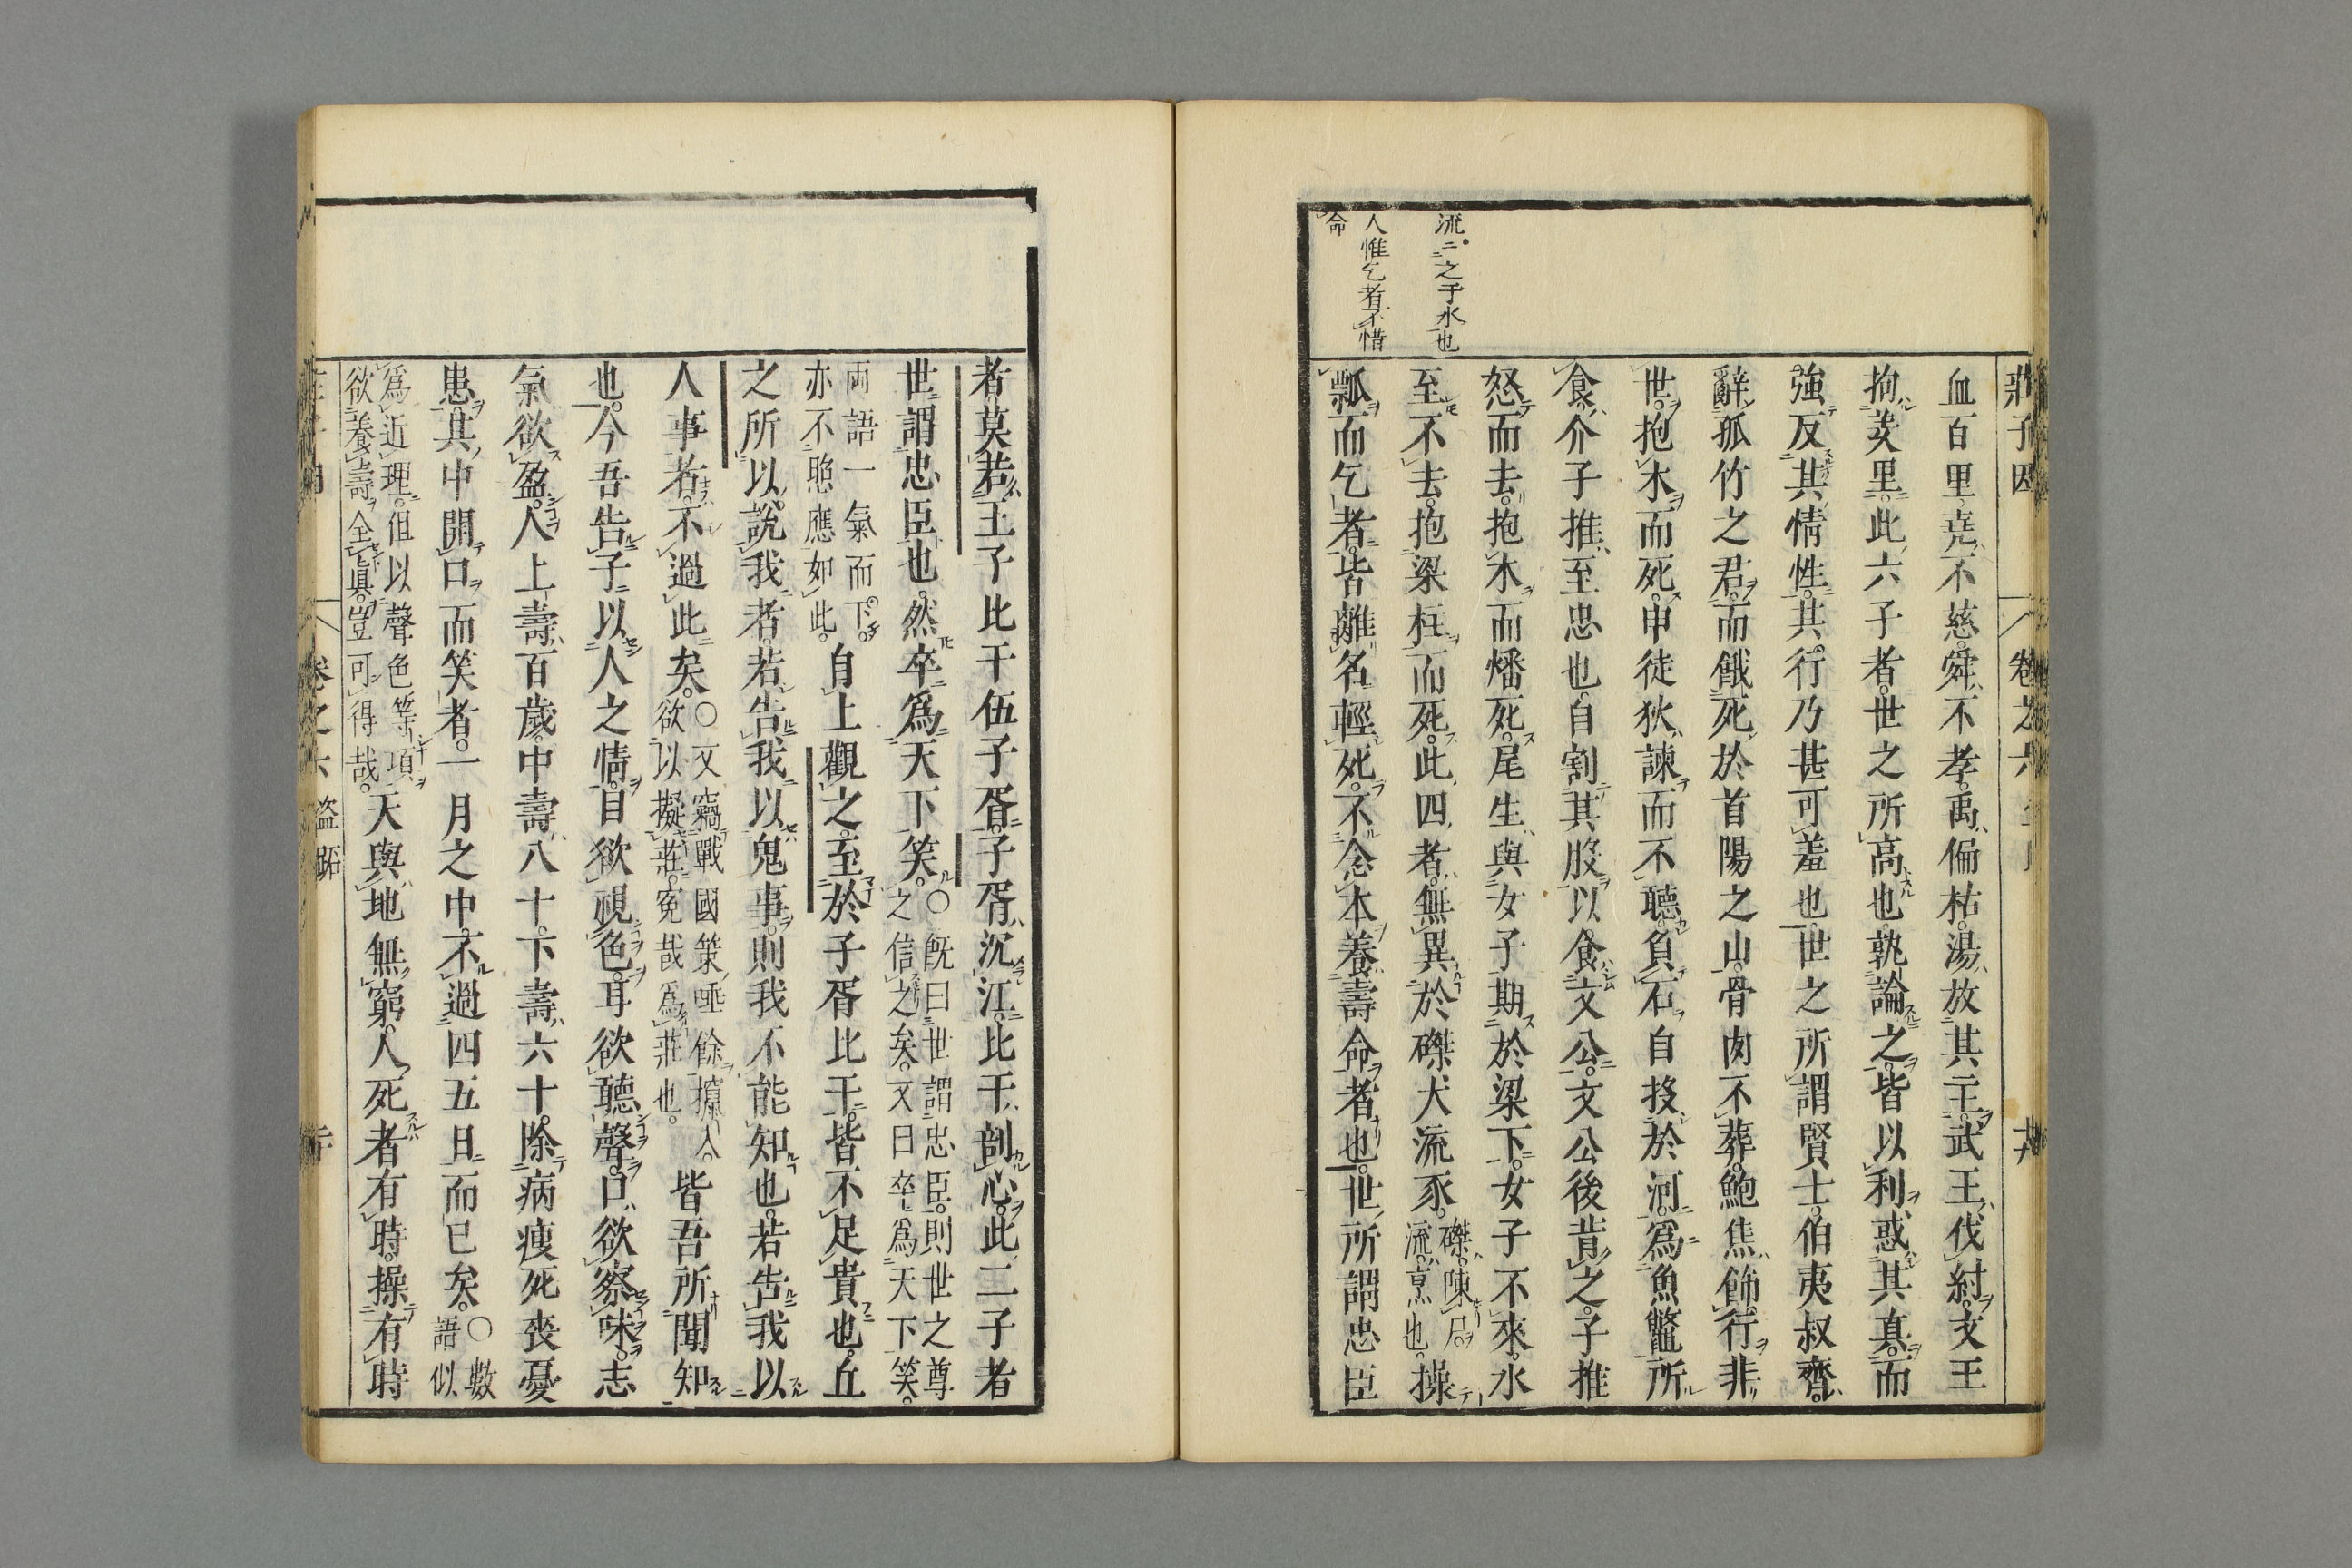 莊子因 卷之六
血百里。堯不慈。舜不孝。禹偏枯。湯放其主。武王伐紂。文王
拘羑里。此六子者。世之所高也。孰論之。皆以利惑其真。而
強反其情性。其行乃甚可羞也。世之所謂賢士。伯夷叔齊。
辭孤竹之君。而餓死於首陽之山。骨肉不葬。鮑焦飾行非
世。抱木而死。申徒狄諫而不聽。負石自投於河。為魚鼈所
食。介子推至忠也。自割其股以食文公。文公後背之。子推
怒而去。抱木而燔死。尾生與女子期於梁下。女子不來。水
流。之于水也
至不去。抱梁柱而死。此四者。無異於磔犬流豕。磔。陳尸。流。烹也。操
人惟乞者不惜命
瓢而乞者。皆離名輕死。不念本養壽命者也。世所謂忠臣
者。莫若王子比干伍子胥。子胥沉江。比干剖心。此二子者
世謂忠臣也。然卒為天下笑。〇既曰世謂忠臣。則世之尊之信之矣。又曰卒為天下笑。
兩語一氣而下。亦不照應如此。自上觀之。至於子胥比干。皆不足貴也。丘
之所以說我者。若告我以鬼事。則我不能知也。若告我以
人事者。不過此矣。〇又竊戰國策唾餘攛入。欲以擬莊。冤哉為莊也。皆吾所聞知
也。今吾告子以人之情。目欲視色。耳欲聽聲。口欲察味。志
氣欲盈。人上壽百歲。中壽八十。下壽六十。除病瘦死喪憂
患。其中開口而笑者。一月之中。不過四五日而已矣。〇數語似
為近理。但以聲色等項欲養壽全眞。豈可得哉。天與地無窮。人死者有時。操有時
卷之六 盜跖